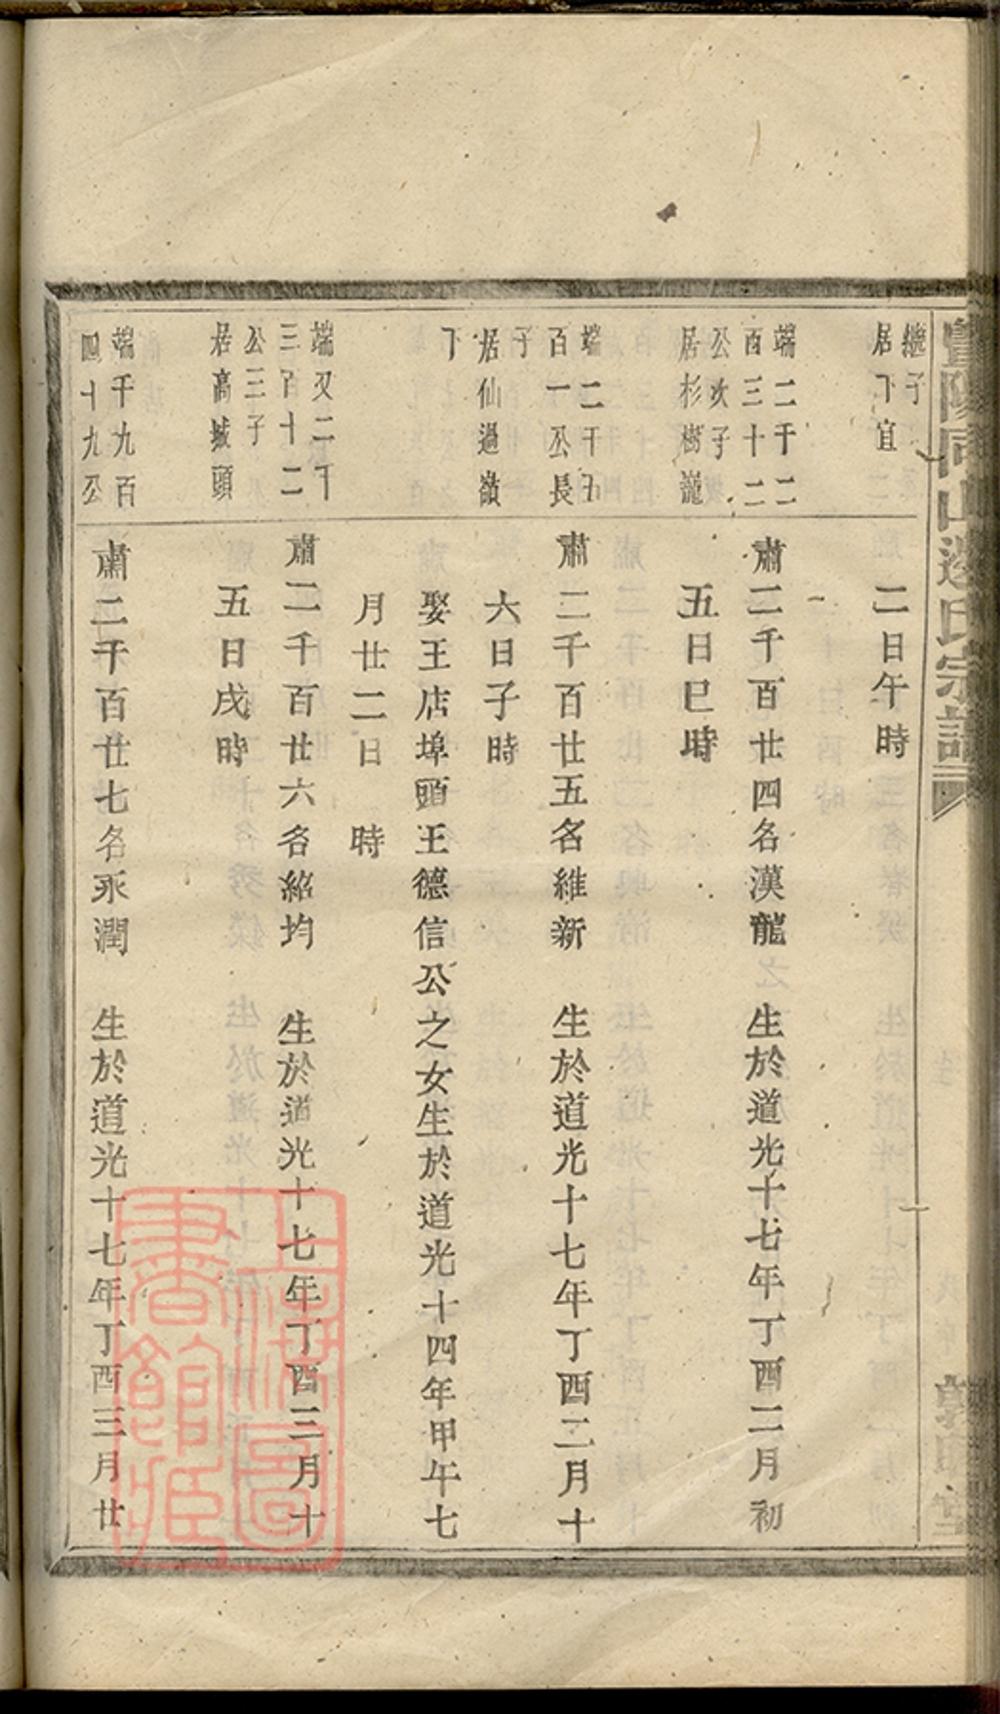 暨陽同山邊氏宗譜
繼子
居下宜
二日午時
端二千二
百三十二
公次子
居杉樹嶺
肅二千百廿四名漢龍 生於道光十七年丁酉二月初
五日巳時
端二千五
百一公長
子
居仙過嶺
下
肅二千百廿五名維新 生於道光十七年丁酉二月十
六日子時
娶王店埠頭王德信公之女生於道光十四年甲午七
月廿二日 時
端又二千
三百十二
公三子
居高城頭
肅二千百廿六名紹均 生於道光十七年丁酉三月十
五日戌時
端千九百
四十九公
肅二千百廿七名永潤 生於道光十七年丁酉三月廿
上海圖書館藏